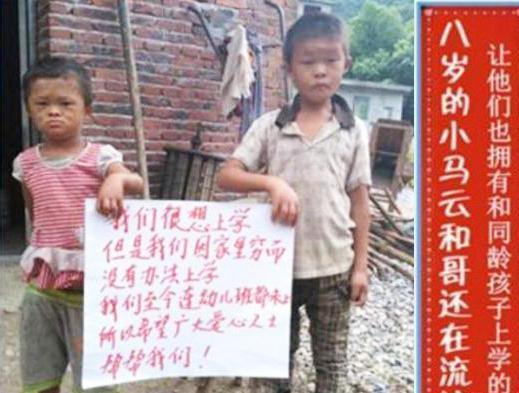 我们很想上学
但是我们因家里穷而
没有办法上学
我们至今连幼儿班都未上
所以希望广大爱心人士
帮帮我们！
八岁的小马云和哥还在流
让他们也拥有和同龄孩子上学的